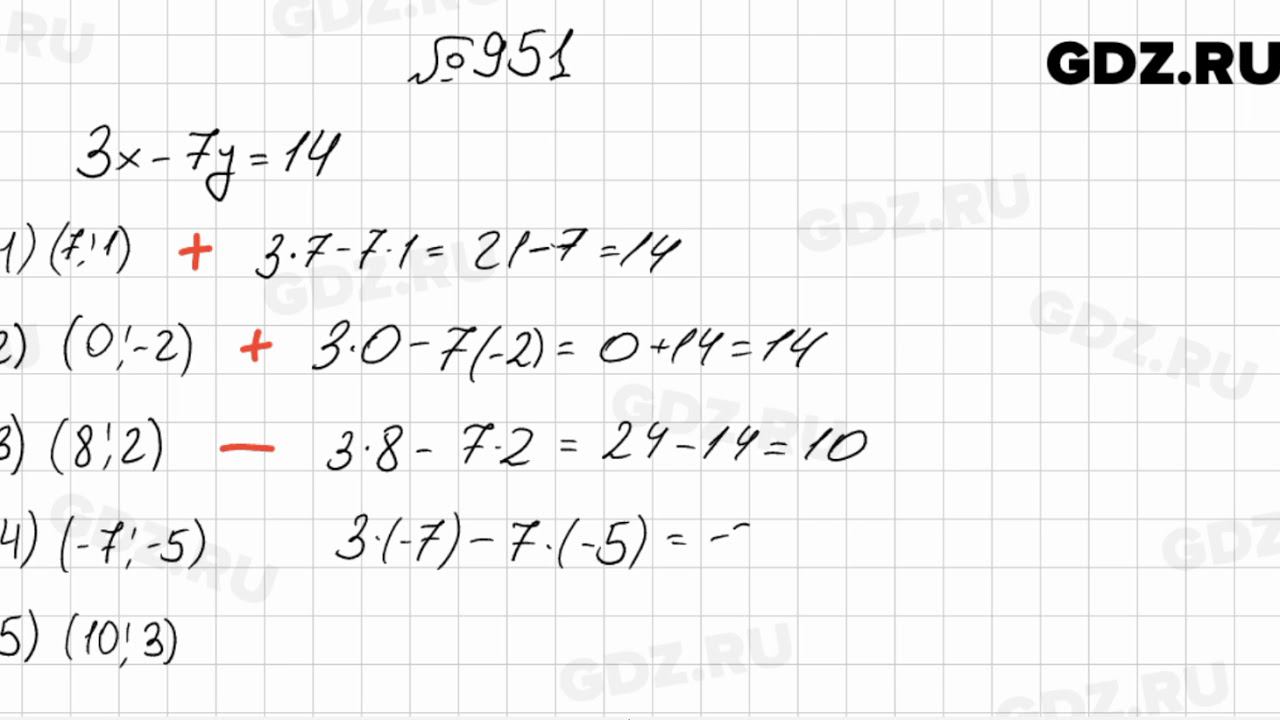 №951
GDZ.RU
3x - 7y = 14
1) (7; 1) + 3·7 - 7·1 = 21 - 7 = 14
2) (0; -2) + 3·0 - 7(-2) = 0 + 14 = 14
3) (8; 2) — 3·8 - 7·2 = 24 - 14 = 10
4) (-7; -5) 3·(-7) - 7·(-5) = -
5) (10; 3)